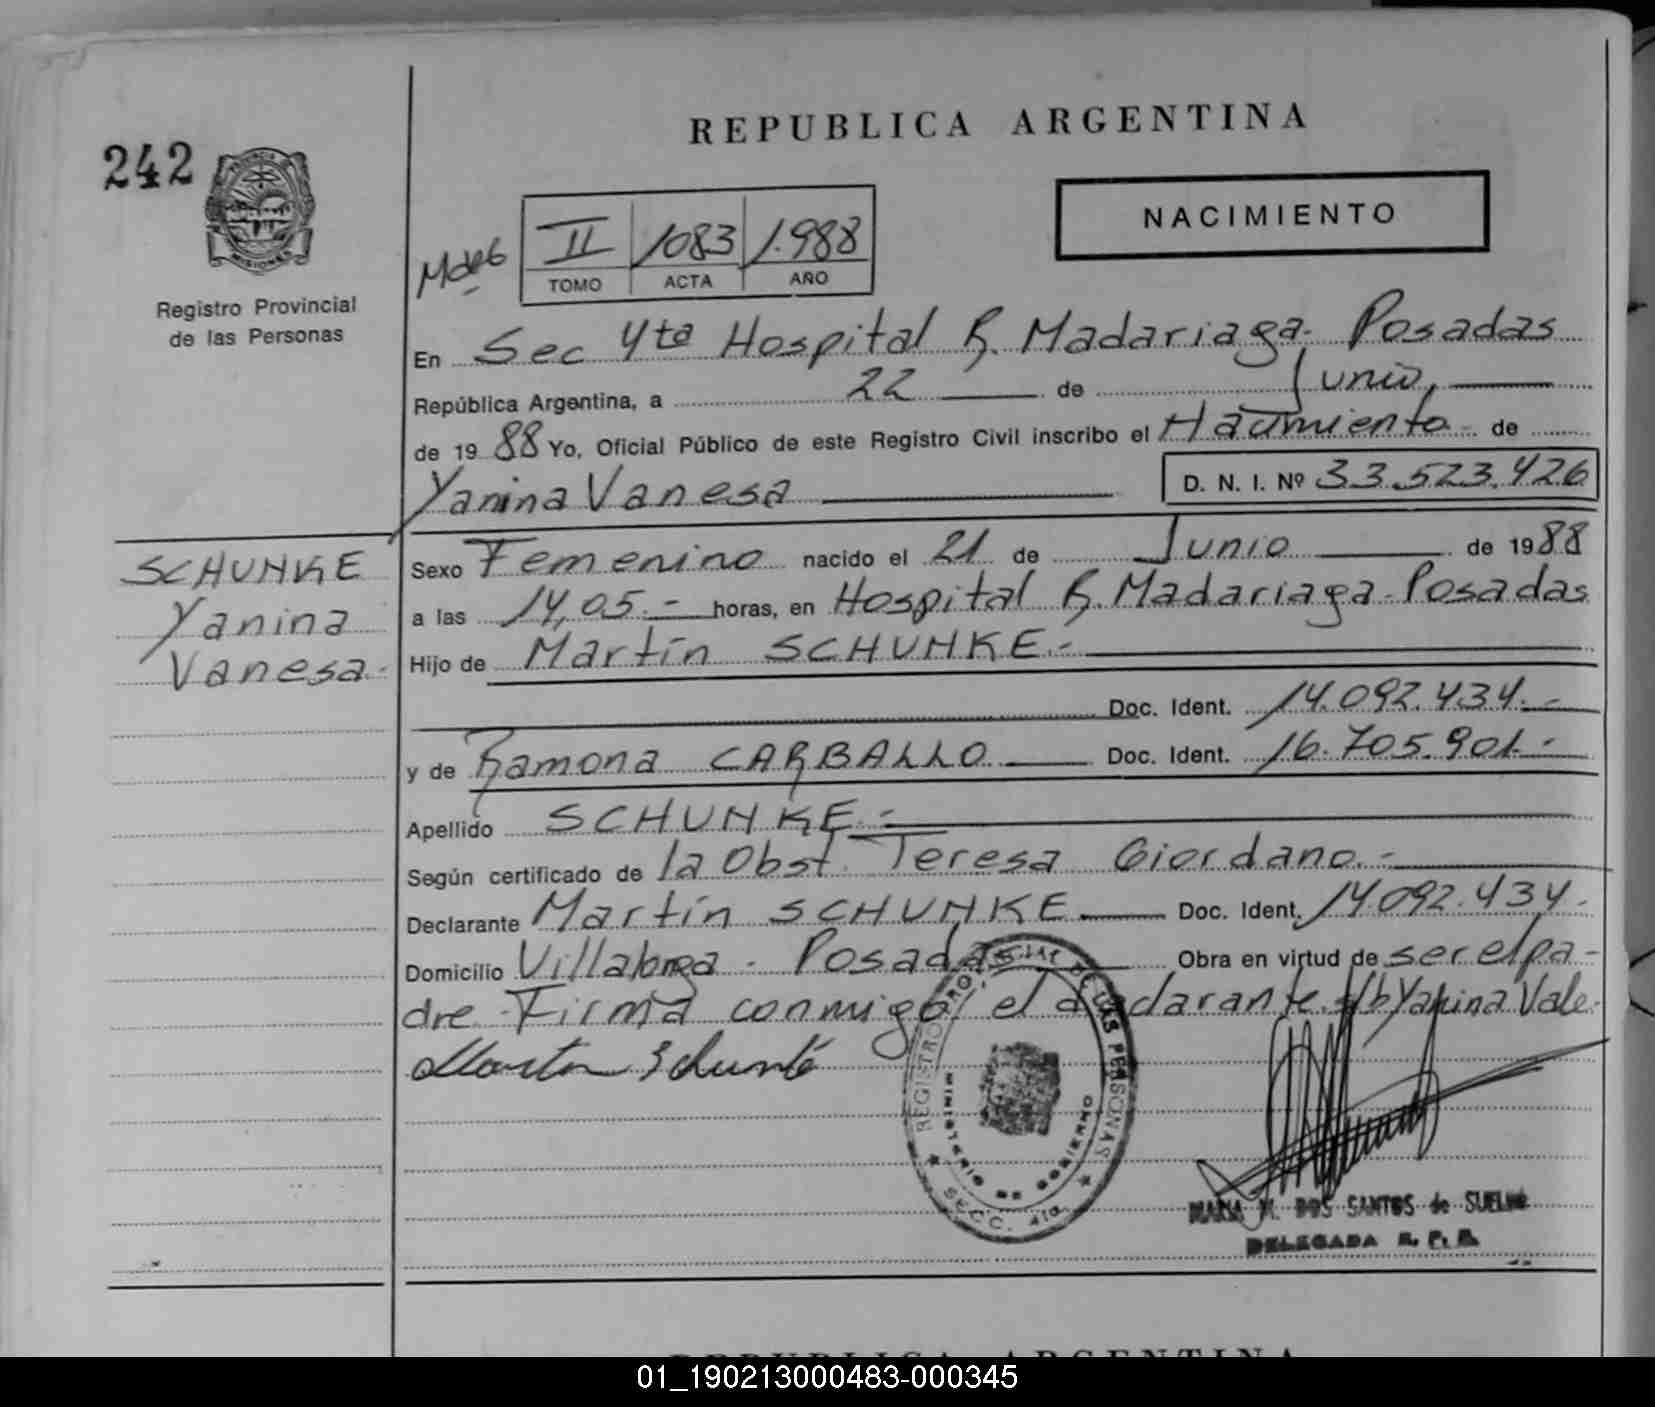 REPUBLICA ARGENTINA
242
PROVINCIA DE
MISIONES
Registro Provincial
de las Personas
NACIMIENTO
II 1083 1.988
TOMO ACTA AÑO
En Sec 4ta Hospital R. Madariaga - Posadas
República Argentina, a 22 de Junio,
de 19 88 Yo, Oficial Público de este Registro Civil inscribo el Nacimiento de
Yanina Vanesa D. N. I. Nº 33.523.426
SCHUNKE
Yanina
Vanesa.-
Sexo Femenino nacido el 21 de Junio de 19 88
a las 14,05.- horas, en Hospital R. Madariaga - Posadas
Hijo de Martín SCHUNKE.-
Doc. Ident. 14.092.434.-
y de Ramona CARBALLO Doc. Ident. 16.705.901.-
Apellido SCHUNKE.-
Según certificado de la Obst. Teresa Giordano.-
Declarante Martín SCHUNKE Doc. Ident. 14.092.434.
Domicilio Villalonga - Posadas Obra en virtud de ser el pa-
dre. Firma conmigo, el declarante. s/b Yanina Vale.
Martin Schunke
REGISTRO PROVINCIAL DE LAS PERSONAS
MINISTERIO DE GOBIERNO
SECC. 4ta
MARIA M. DOS SANTOS de
DELEGADA R. P. P.
REPUBLICA ARGENTINA
01_190213000483-000345